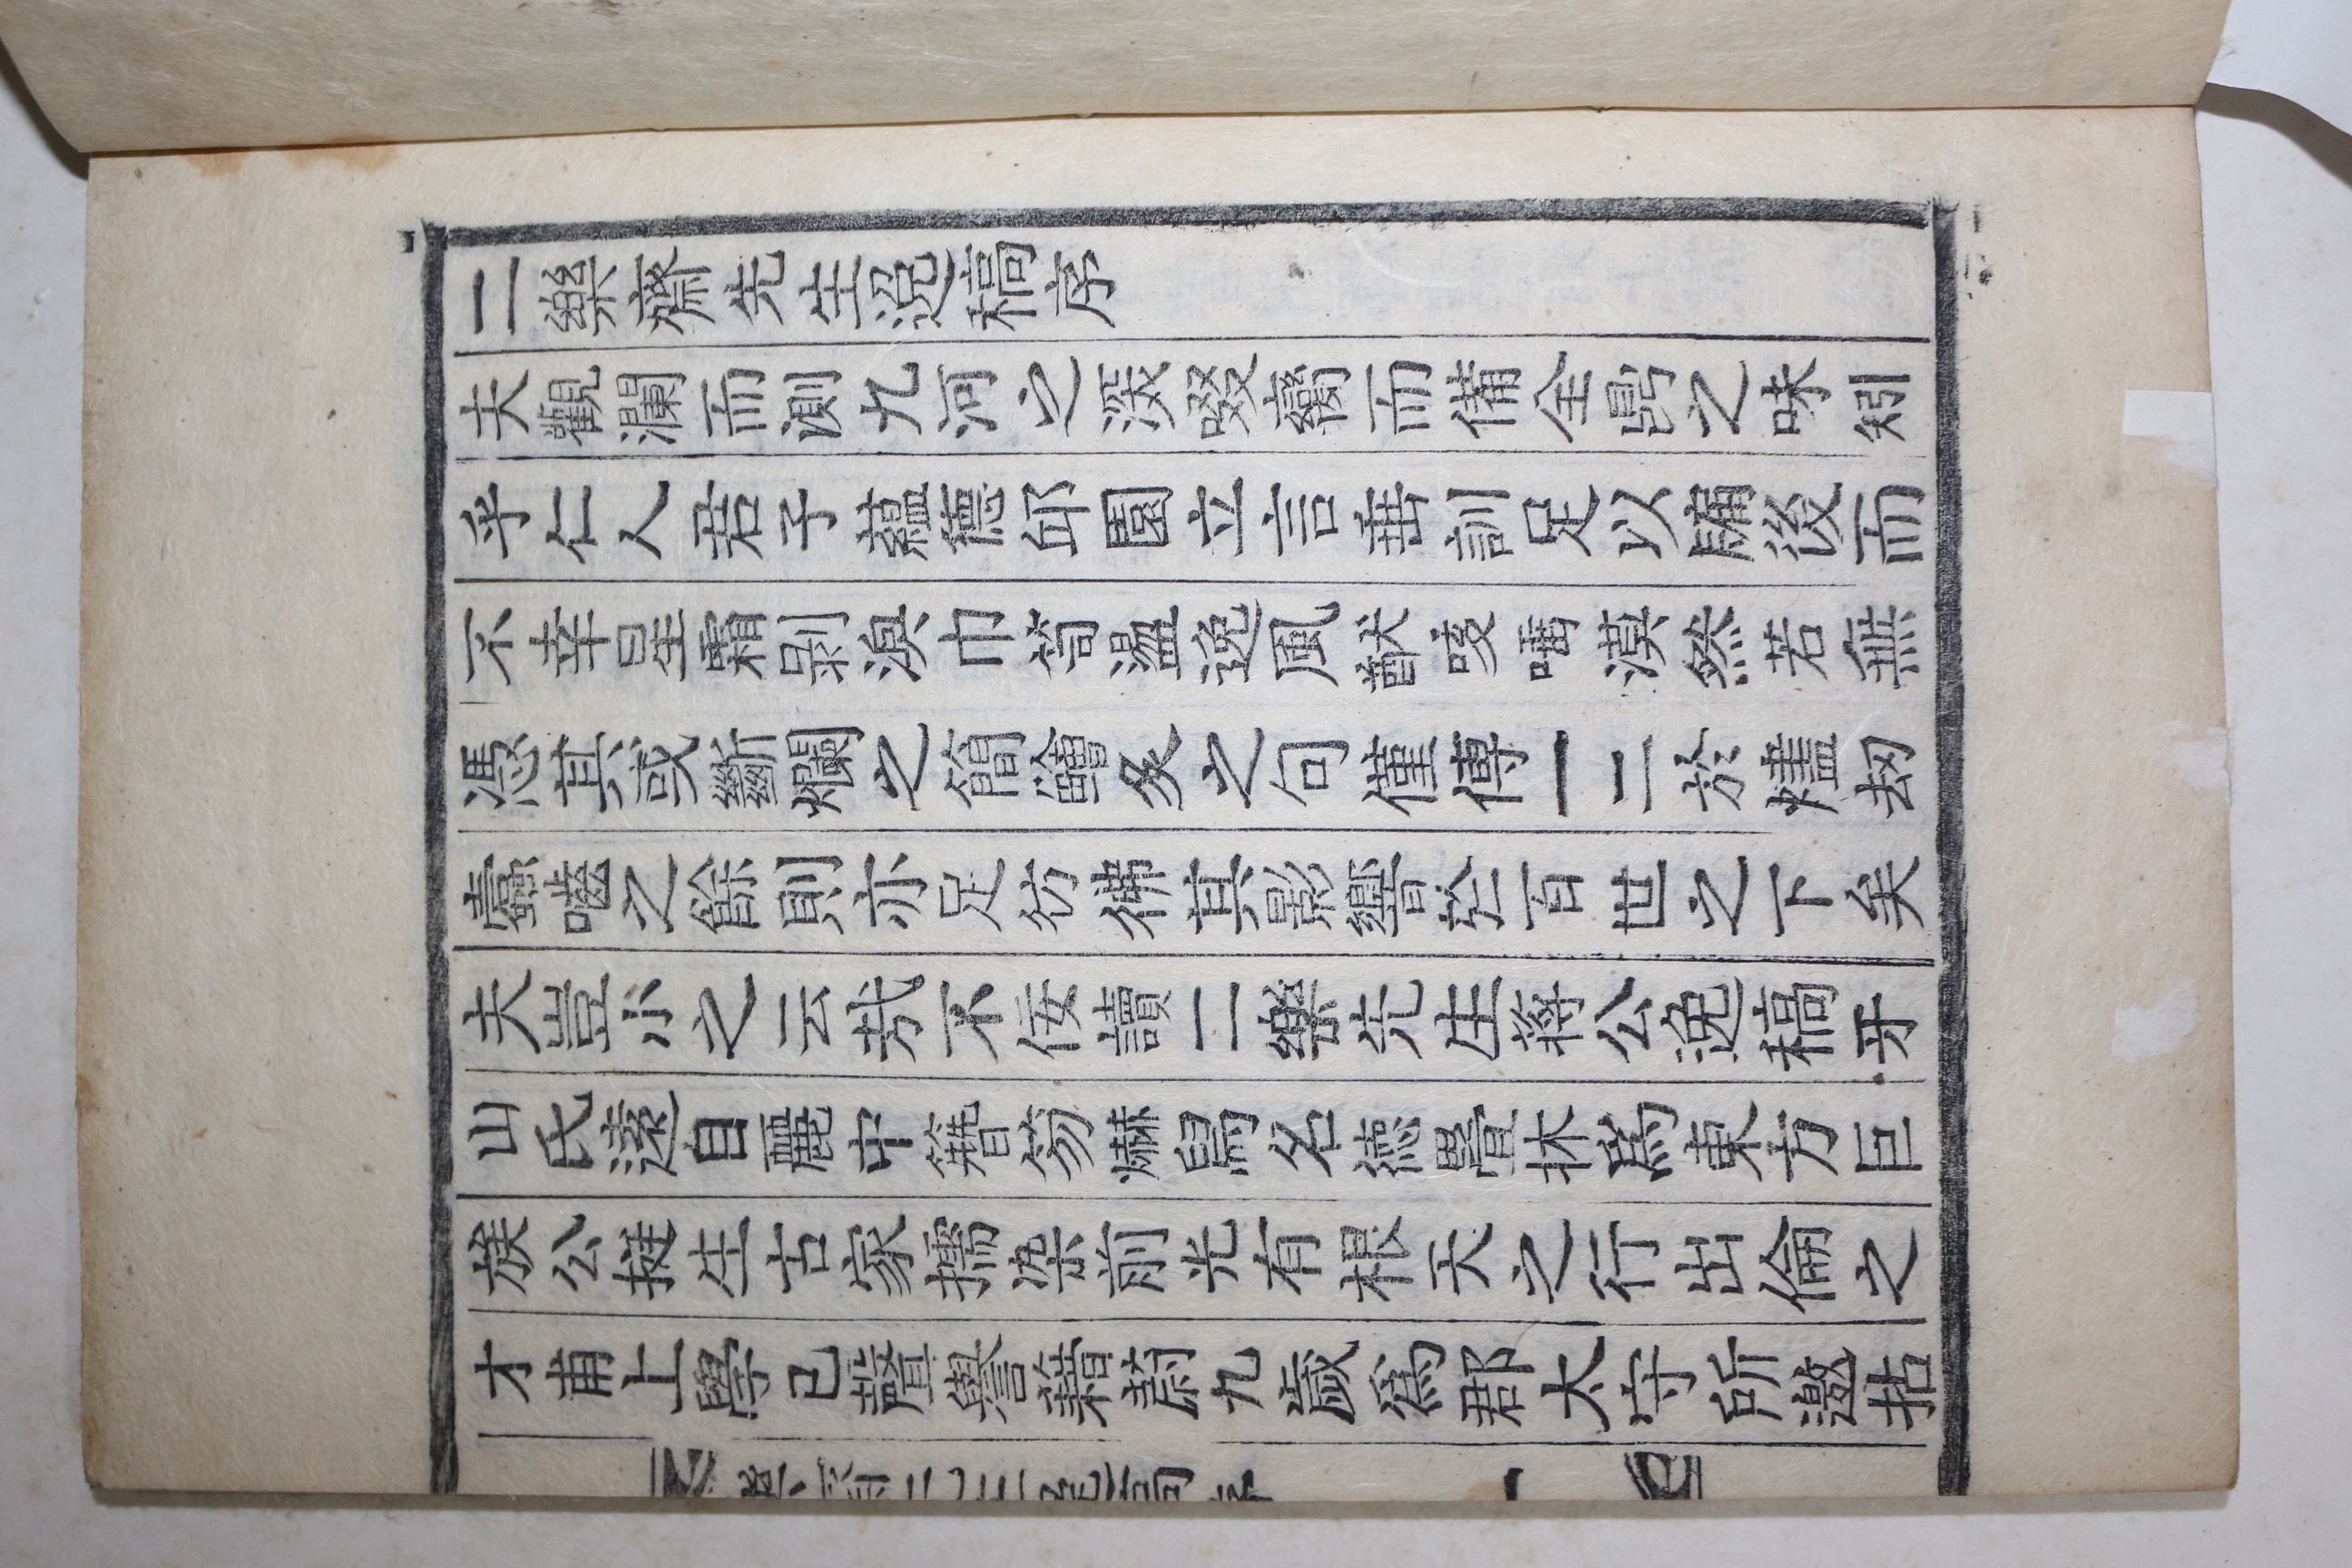 二樂齋先生逸稿序
夫觀瀾而測九河之深啜臠而備全鼎之味矧
乎仁人君子蘊德邱園立言垂訓足以牖後而
不幸星霜剥渙巾笥盪逸風猷咳唾漠然若無
憑其或斷爛之簡鱠炙之句僅傳一二於燼刼
蠹囓之餘則亦足彷彿其影響於百世之下矣
夫豈小之云哉不佞讀二樂先生蔣公逸稿牙
山氏遠自麗中簪笏爀舄名德疊休爲東方巨
族公挺生古家擩染前光有根天之行出倫之
才甫上學已聲譽藉蔚九歲爲郡太守所邀拈
樂齋先生逸稿 序 一